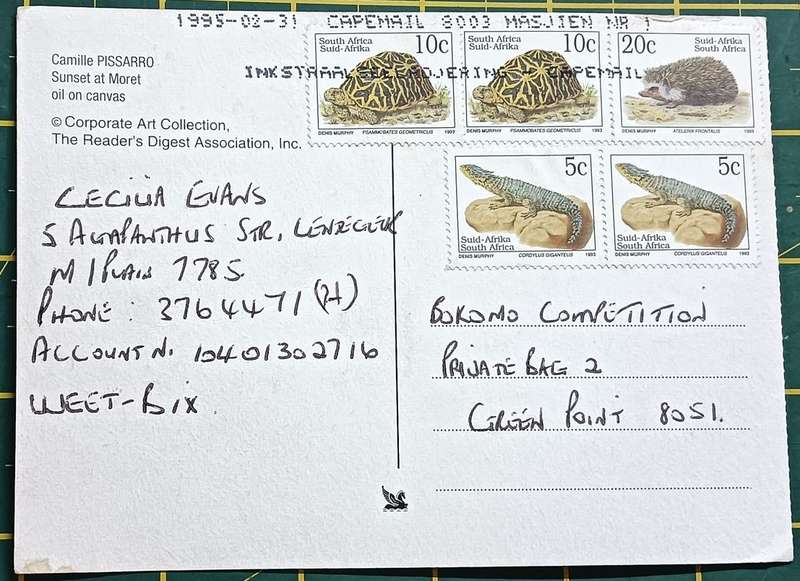 1995-02-31 CAPEMAIL 8003 MASJIEN NR 1
INKSTRAALSEËLROJERING - CAPEMAIL
Camille PISSARRO
Sunset at Moret
oil on canvas
© Corporate Art Collection,
The Reader's Digest Association, Inc.
South Africa
Suid-Afrika
10c
DENIS MURPHY PSAMMOBATES GEOMETRICUS 1993
South Africa
Suid-Afrika
10c
DENIS MURPHY PSAMMOBATES GEOMETRICUS 1993
20c
Suid-Afrika
South Africa
DENIS MURPHY ATELERIX FRONTALIS 1993
5c
Suid-Afrika
South Africa
DENIS MURPHY CORDYLUS GIGANTEUS 1993
5c
Suid-Afrika
South Africa
DENIS MURPHY CORDYLUS GIGANTEUS 1993
CECILIA EVANS
5 AGAPANTHUS STR, LENTEGEUR
M/PLAIN 7785
PHONE: 3764471 (H)
ACCOUNT N. 10401302716
WEET-BIX.
BOKOMO COMPETITION
PRIVATE BAG 2
GREEN POINT 8051.